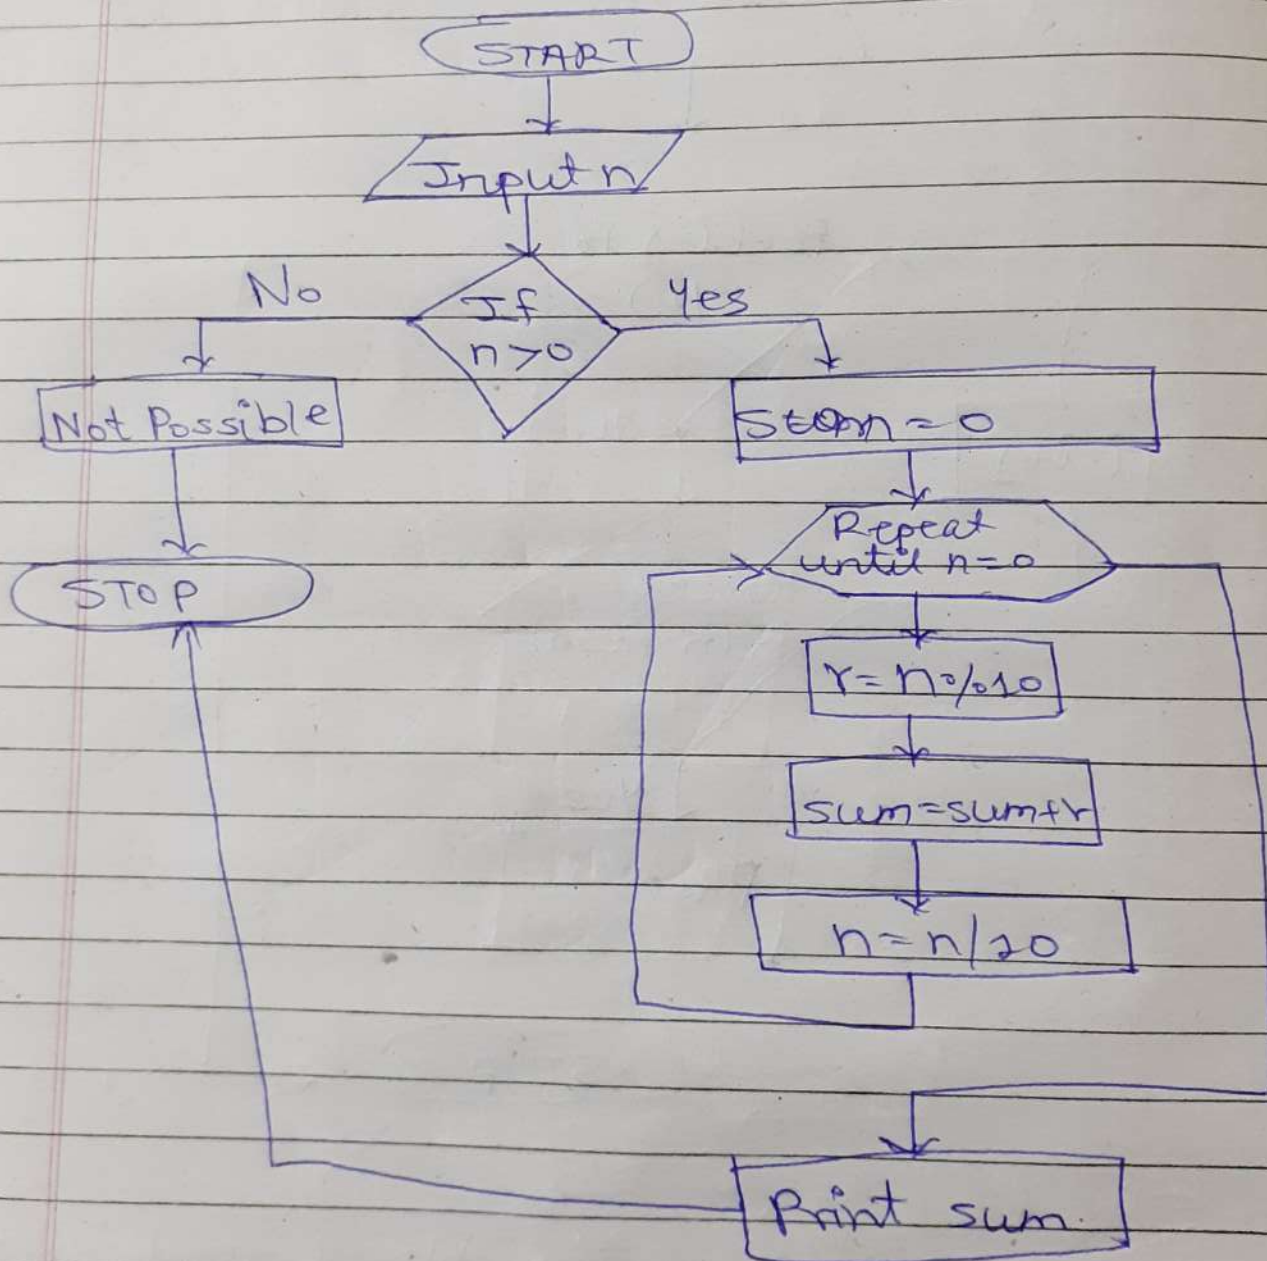 START
Input n
No
If
n>0
Yes
Not Possible
= 0
STOP
Repeat
until n=0
r=n%10
sum=sum+r
n=n/10
Print sum.